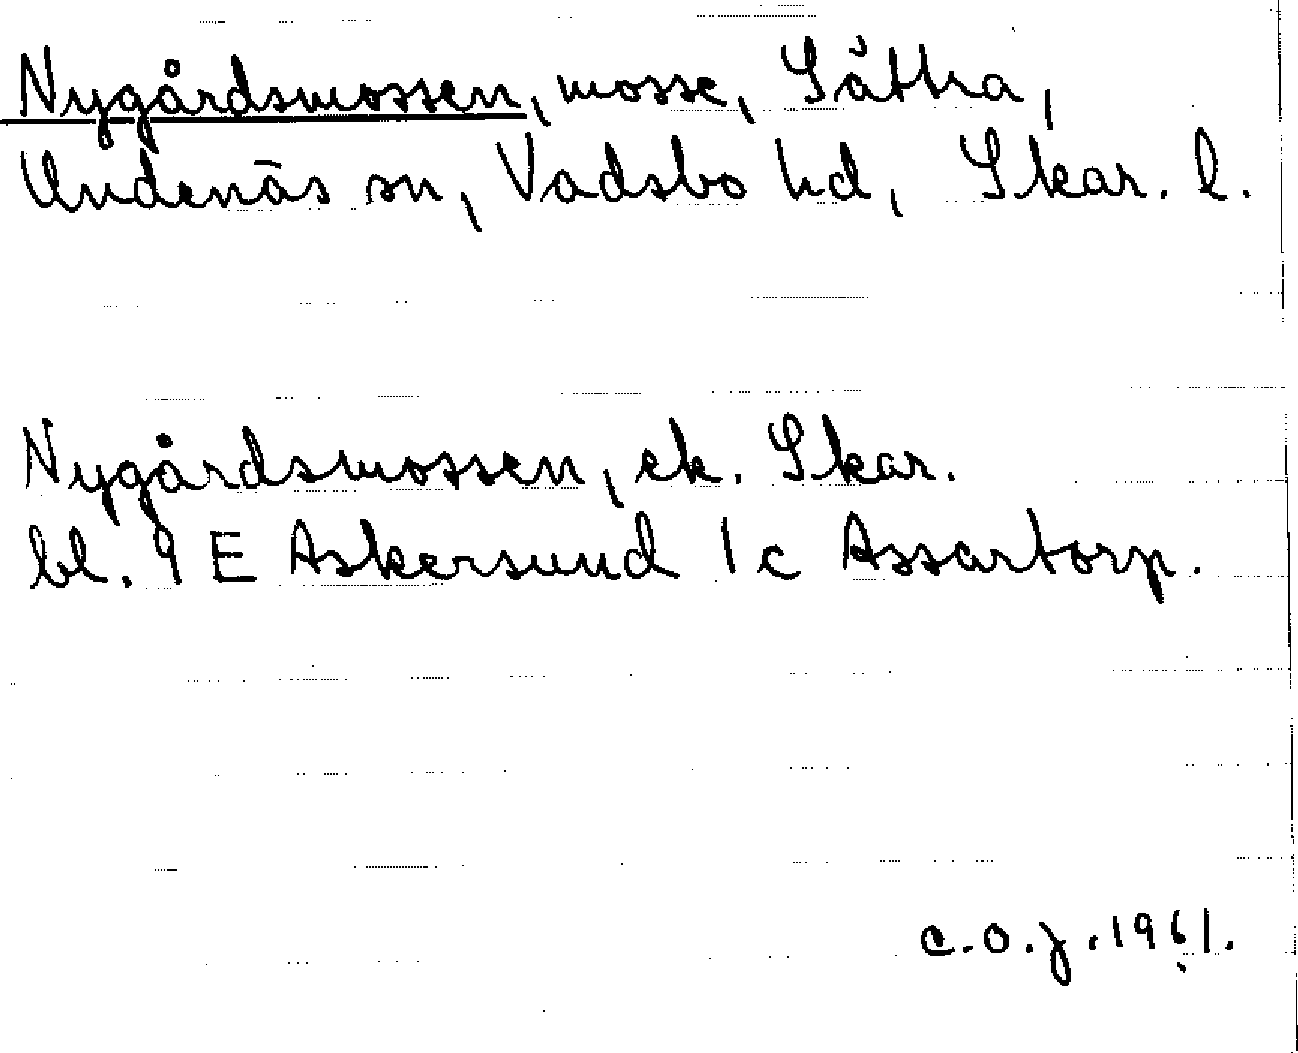 Nygårdsmossen, mosse, Sätra,
Undenäs sn, Vadsbo hd, Skar. l.
Nygårdsmossen, ek. Skar.
bl. 9 E Askersund 1 c Assartorp.
C.O.J. 1961.